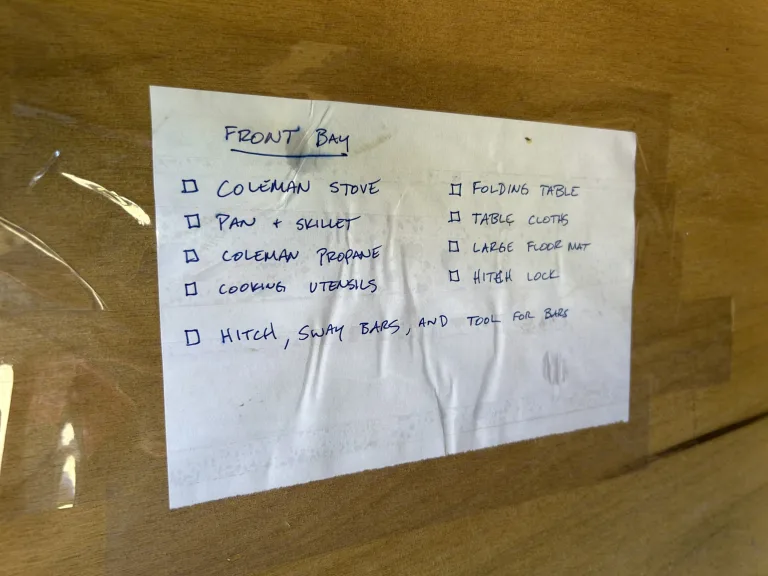 FRONT BAY
☐ COLEMAN STOVE
☐ PAN + SKILLET
☐ COLEMAN PROPANE
☐ COOKING UTENSILS
☐ FOLDING TABLE
☐ TABLE CLOTHS
☐ LARGE FLOOR MAT
☐ HITCH LOCK
☐ HITCH, SWAY BARS, AND TOOL FOR BARS